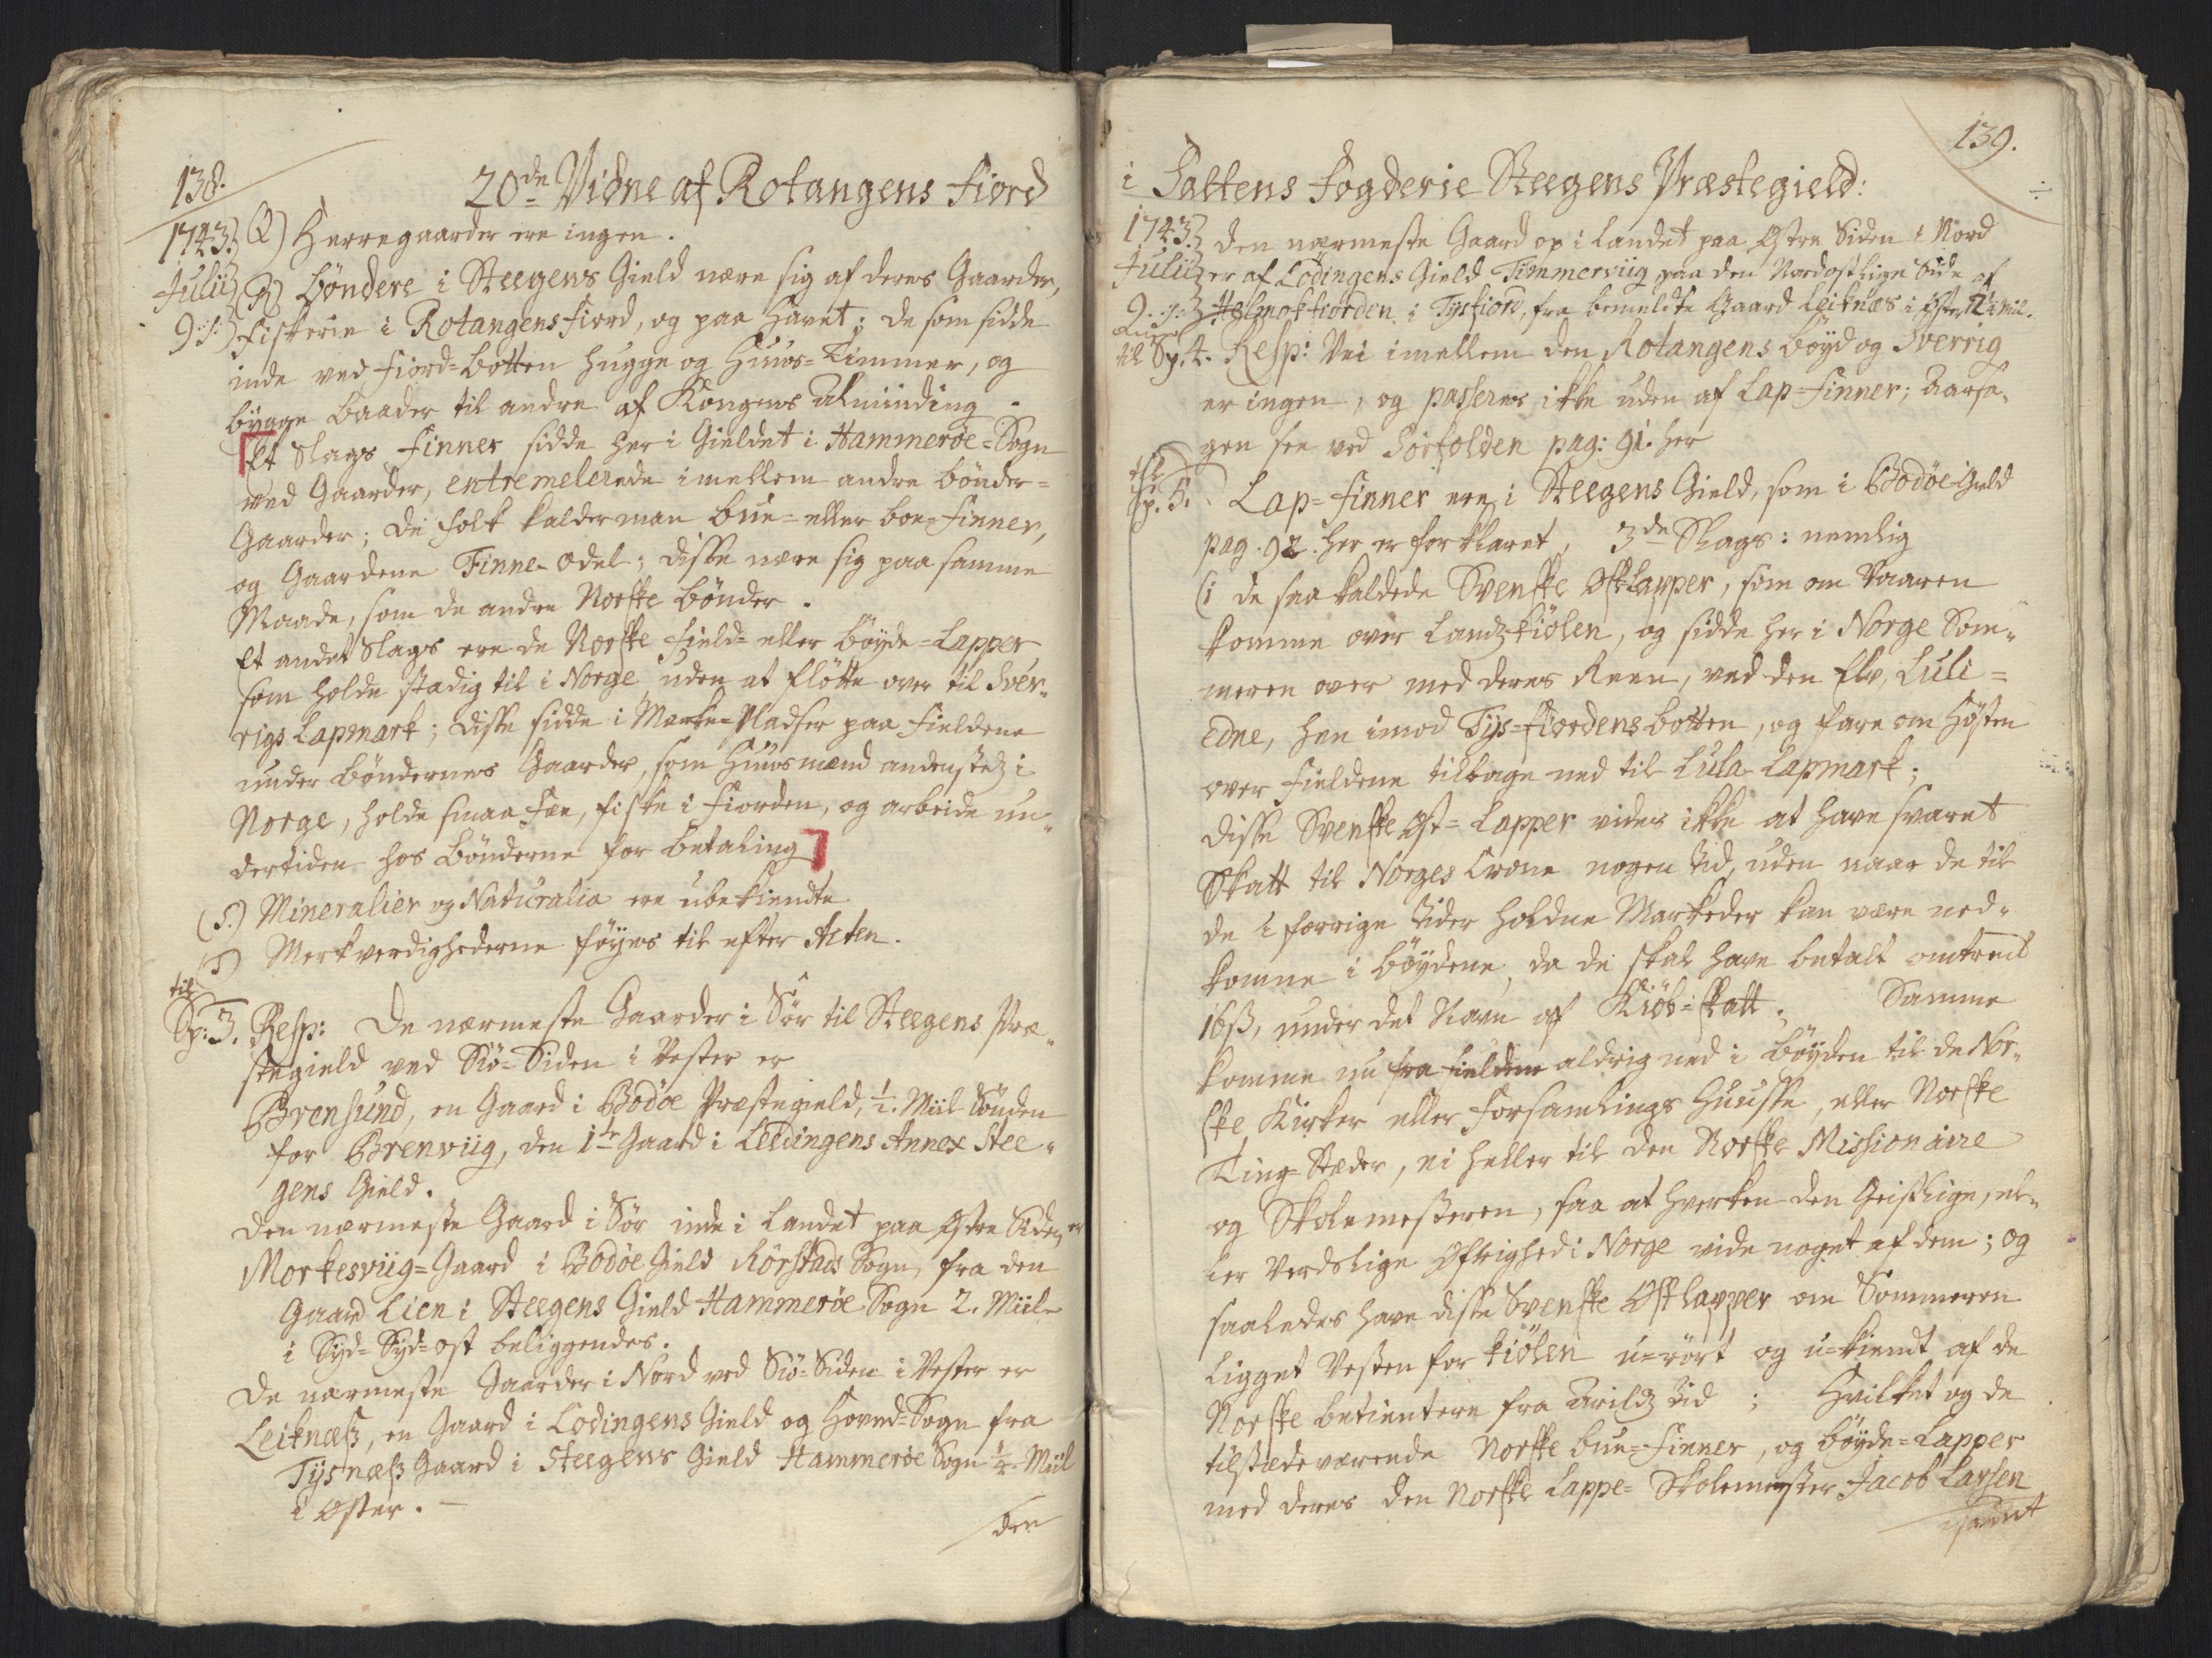 138.
20de Vidne af Rotangens Fiord
1743. Q) Herregaarder ere ingen.
Julii R) Bönder i Steegens Gield nære sig af deres Gaarder,
9. Fiskerie i Rotangens Fiord, og paa Havet; de som sidde
inde ved Fiord-Botten hugge og Huus-Timmer, og
bygge Baader til andre af Kongens Alminding.
Et Slags Finner sidde her i Gieldet i Hammeröe-Sogn
ved Gaarder, entremelerede imellem andre Bönder-
Gaarder; De folk kalder man Bue- eller boe-Finner,
og Gaardene Finne-Odel; disse nære sig paa samme
Maade, som de andre Norske Bönder.
Et andet Slags ere de Norske Field- eller Böyde-Lapper
som holde stadig til i Norge uden at flötte over til Sver-
rigs Lapmark; disse sidde i Marke-Pladser paa Fieldene
under Böndernes Gaarder, som Huusmænd andenstedz i
Norge, holde smaa Fæe, fiske i Fiorden, og arbeide un-
dertiden hos Bönderne for Betaling
(S.) Mineralier og Naturalia ere ubekiendte
(T) Merkverdighederne föyes til efter Acten.
til
Sp: 3. Resp: De nærmeste Gaarder i Sör til Steegens Præ-
stegield ved Siö-Siden i Vester er
Brensund, en Gaard i Bodöe Præstegield, 1/2. Miil Sönden
for Brenviig, den 1te Gaard i Leedingens Annex Stee-
gens Gield.
Den nærmeste Gaard i Sör inde i Landet paa Östre Siden er
Morkesviig-Gaard i Bodöe Gield Rörstads Sogn, fra den
Gaard Lien i Steegens Gield Hammeröe Sogn 2. Miile
i Syd-Syd-ost beliggendes.
De nærmeste Gaarder i Nord ved Siö-Siden i Vester er
Leiknæss, en Gaard i Lodingens Gield og Hoved-Sogn fra
Tysnæss Gaard i Steegens Gield Hammeröe Sogn 1/4. Miil
i Oster.
den
139.
i Saltens Fogderie Steegens Præstegield:
1743. Den nærmeste Gaard op i Landet paa Östre Siden i Nord
Julii er af Lödingens Gield Timmerviig paa den Nordostlige Side af
9. Helmokfiorden i Tysfiord, fra bemeldte Gaard Leiknæs i Öster
til Sp. 4. Resp: Vei imellem den Rotangens Böyd og Sverrig
er ingen, og passeres ikke uden af Lap-Finner; Aarsa-
gen see ved Sörfolden pag: 91. her
til
Sp. 5. Lap-Finner ere i Steegens Gield, som i Bodöe Gield
pag. 92. her er forklaret, 3de Slags: nemlig
(1 de saa kaldede Svenske Ostlapper, som om Vaaren
komme over Landz-Kiölen, og sidde her i Norge Som-
meren over med deres Reen, ved den Elv, Luli-
edne, hen imod Tys-Fiordens Botten, og fare om Hösten
over Fieldene tilbage ned til Lula Lapmark;
Disse Svenske Öst-Lapper vides ikke at have svaret
Skatt til Norges Crone nogen Tid, uden naar de til
de i forrige Tider holdne Markeder kan være ned-
komne i Böydene, da de skal have betalt omtrent
16ß, under det Navn af Kiöb-skatt; Samme
komme nu fra Fieldene aldrig ned i Böyden til de Nor-
ske Kirker eller Forsamlings Huusse, eller Norske
Ting-Stæder, ei heller til den Norske Missionaire
og Skolemesteren, saa at hverken den Geistlige, el-
ler Verdslige Öfrighed i Norge vide noget af dem; og
saaledes have disse Svenske Ostlapper om Sommeren
ligget Vesten for Kiölen u-rört og u-kiendt af de
Norske betientere fra Arildz Tid; Hvilket og de
tilstædeværende Norske Bue-Finner, og Böyde-Lapper
med deres den Norske Lappe-Skolemester Jacob Larsen